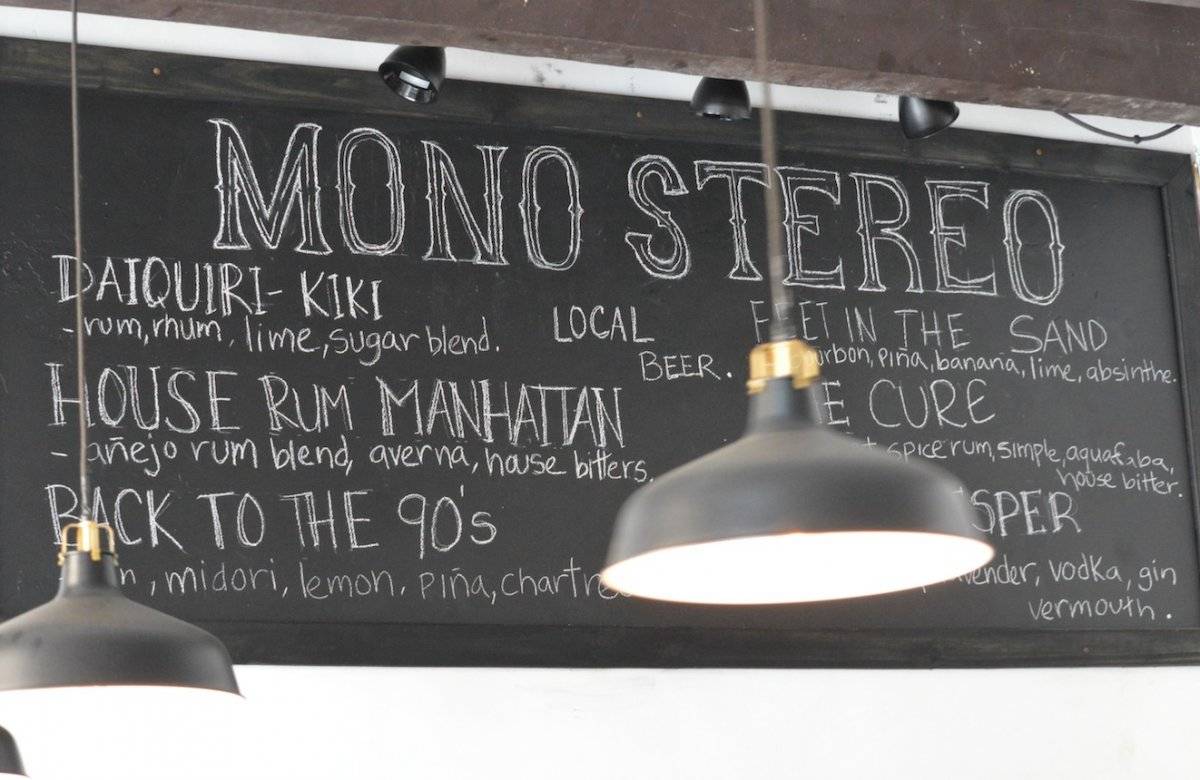 MONO STEREO
DAIQUIRI- KIKI
- rum, rhum, lime, sugar blend.
HOUSE RUM MANHATTAN
- añejo rum blend, averna, house bitters.
BACK TO THE 90's
, midori, lemon, piña,
LOCAL
BEER.
FEET IN THE SAND
piña, banana, lime, absinthe.
CURE
spice rum, simple, aquafaba,
house bitter.
vodka, gin
vermouth.